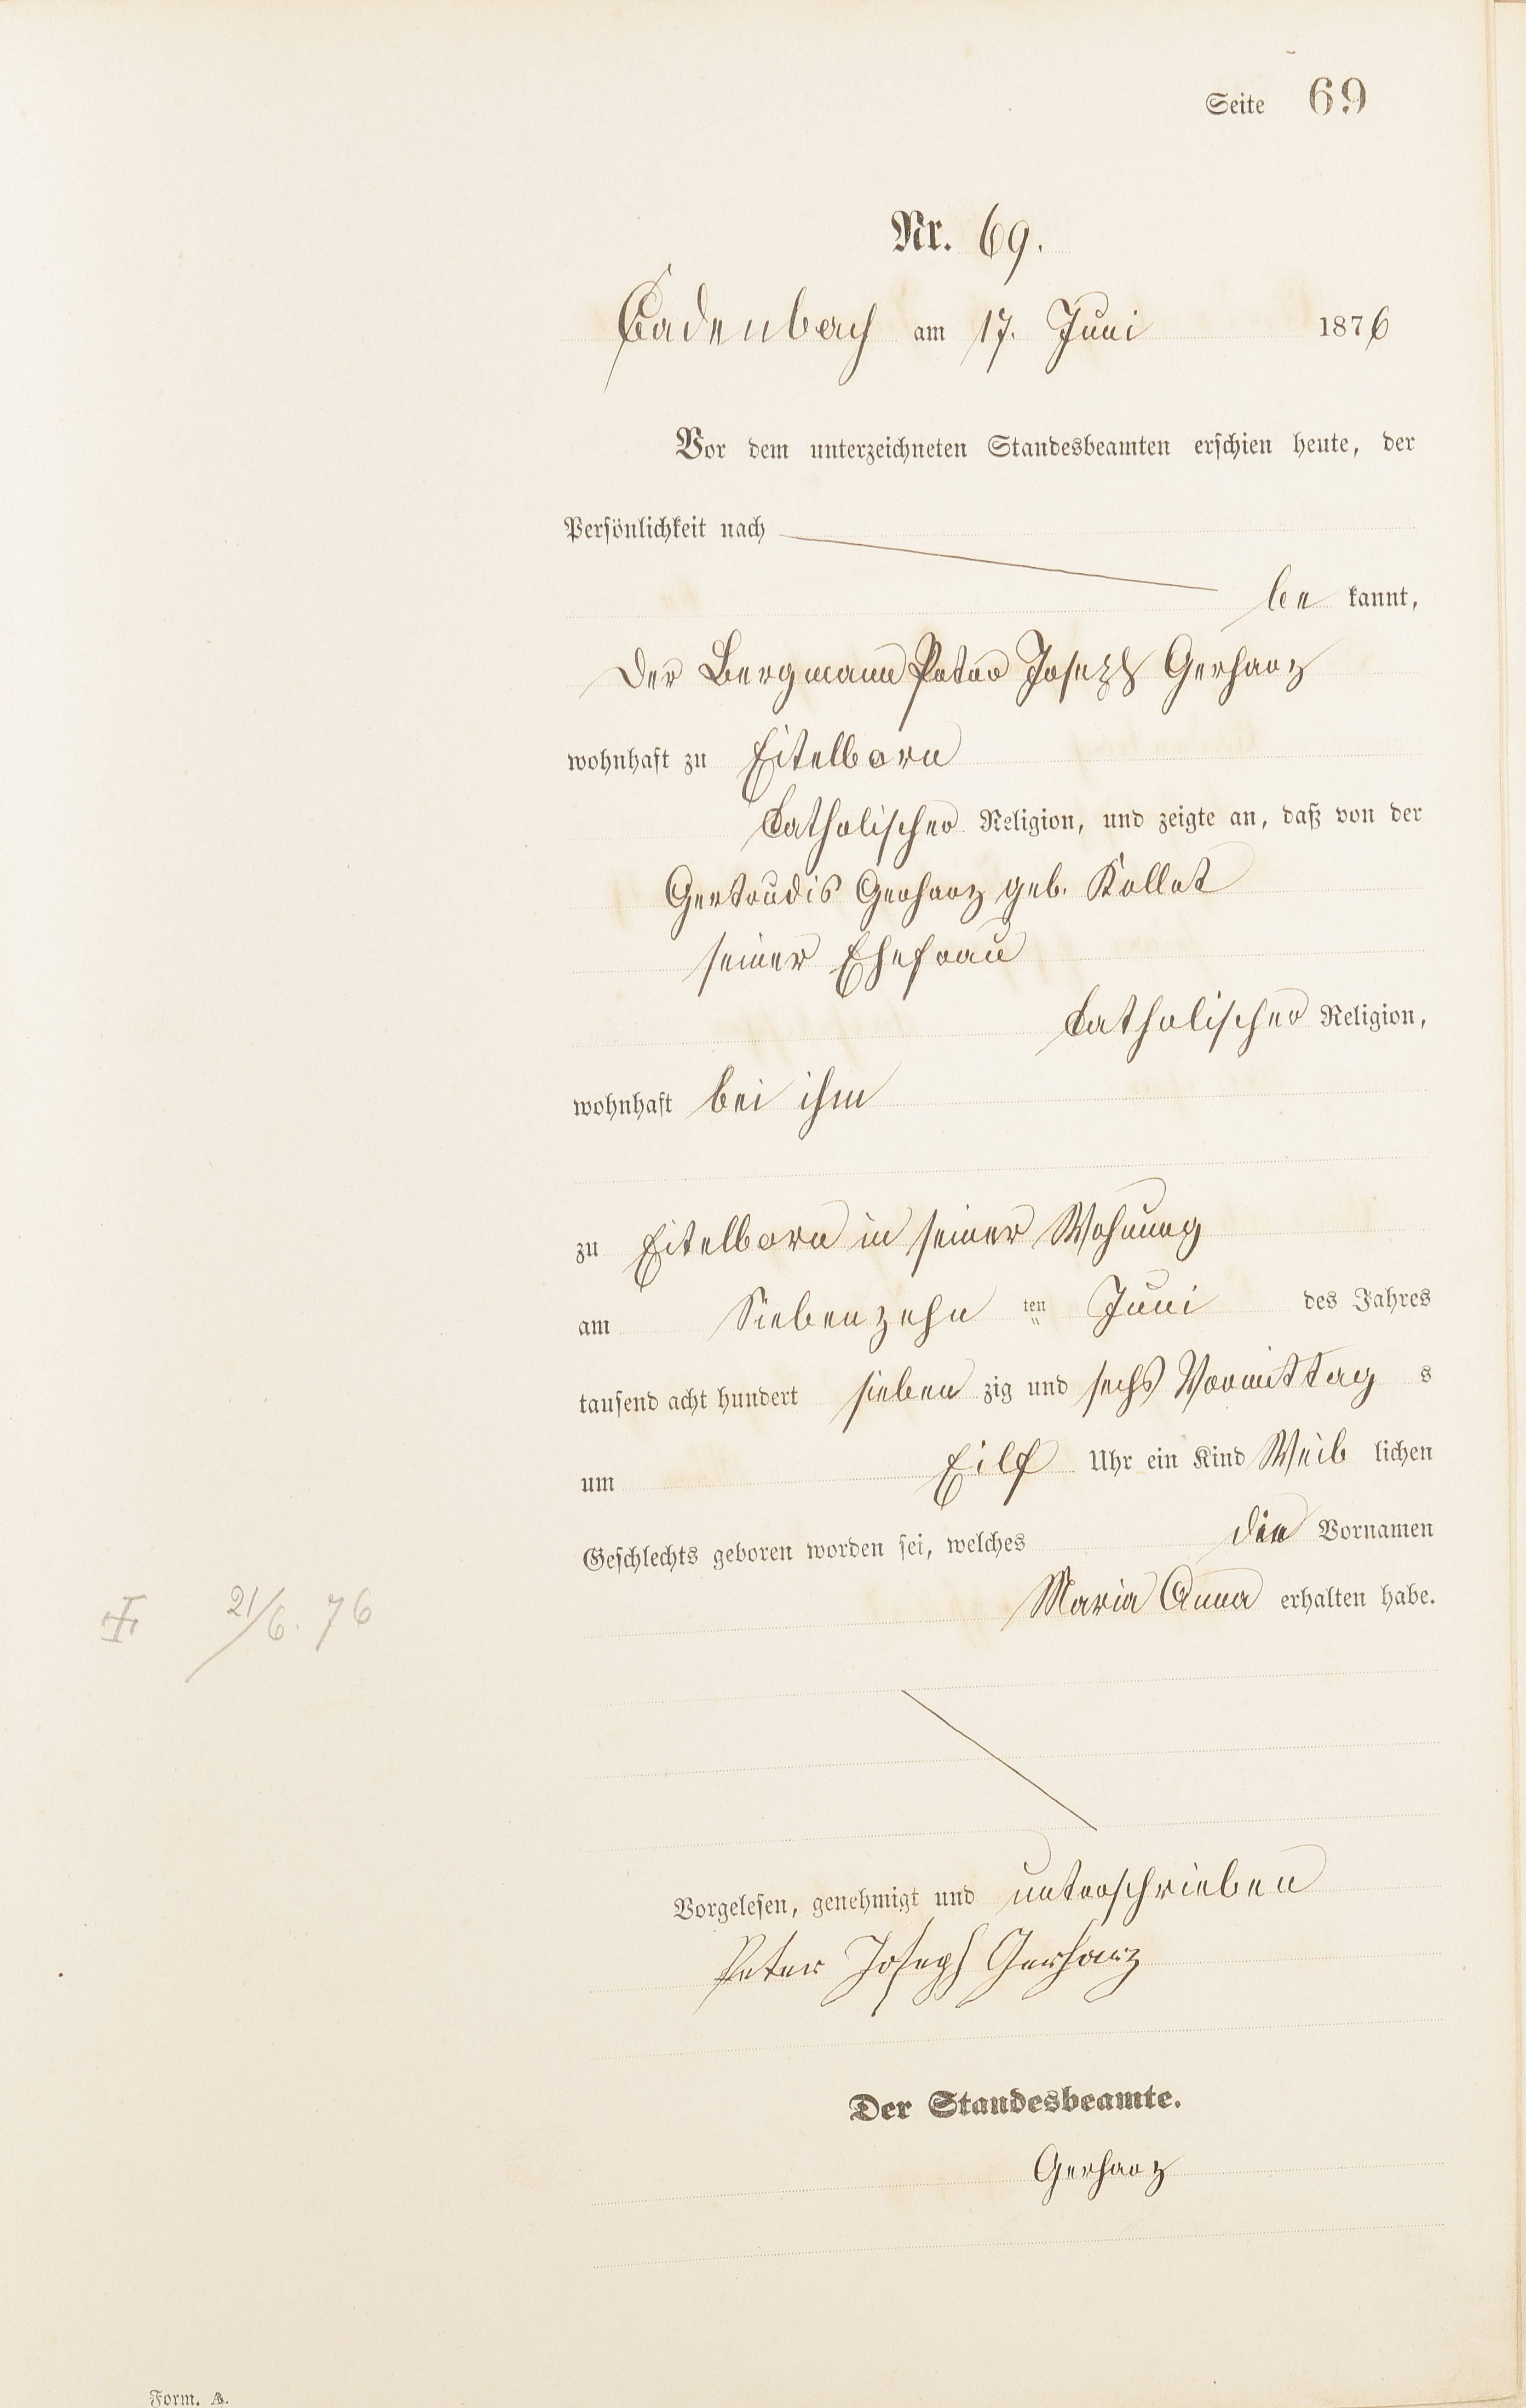 Seite 69
Nr. 69.
Cadenbach am 17. Juni 1876
Vor dem unterzeichneten Standesbeamten erschien heute, der
Persönlichkeit nach
be kannt,
der Bergmann Peter Joseph Gerharz
wohnhaft zu Eitelborn
Catholischer Religion, und zeigte an, daß von der
Gertrudis Gerharz geb. Kollat
seiner Ehefrau
Catholischer Religion,
wohnhaft bei ihm
zu Eitelborn in seiner Wohnung
am Siebenzehn ten Juni des Jahres
tausend acht hundert sieben zig und sechs Vormittag s
um Eilf Uhr ein Kind Weib lichen
Geschlechts geboren worden sei, welches die Vornamen
Maria Anna erhalten habe.
21/6. 76
Vorgelesen, genehmigt und unterschrieben
Peter Joseph Gerharz
Der Standesbeamte.
Gerharz
Form. A.